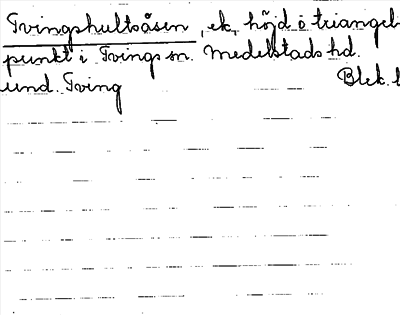 Tvingshultsåsen, ek. höjd o triangel
punkt i Tvings sn. Medelstads hd.
und. Tving Blek. l